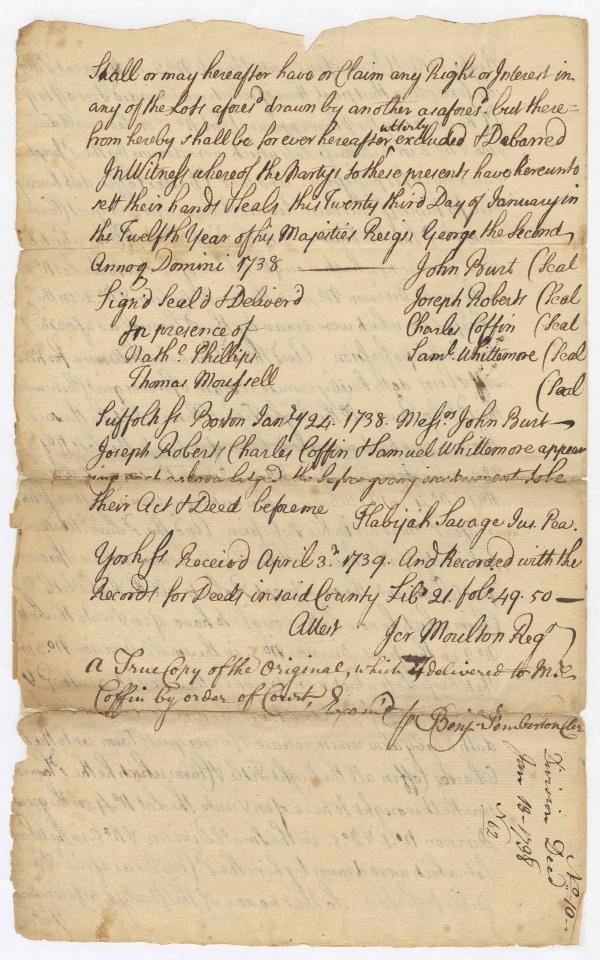 Shall or may hereafter have or Claim any Right or Interest in
any of the Lots afores:d drawn by another as afores:d. but there=
from hereby shall be forever hereafter utterly excluded & Debarred
In Witness whereof the Partys to these presents have hereunto
sett their hands & seals this Twenty third Day of January in
the Twelfth Year of his Majesties Reign George the Second
Annoq Domini 1738 John Burt (Seal
Sign'd Seal'd & Deliverd Joseph Roberts (Seal
In presence of Charles Coffin (Seal
Nath:l Phillips Sam:l Whittemore (Seal
Thomas Moussell (Seal
Suffolk ss Boston Jan:ry 24. 1738. Mess:rs John Burt
Joseph Roberts Charles Coffin & Samuel Whittemore appear
ing and acknowledged the before going instrument to be
their Act & Deed before me Habijah Savage Jus. Pea.
York ss Receiv'd April 3:d 1739. And Recorded with the
Records for Deeds in said County Lib:o 21. fol:o 49. 50 —
Attest Jer Moulton Reg:r
A True Copy of the Original, which I delivered to M:r
Coffin by order of Court, Exam:d p Benj:a Pemberton Cler
No. 10
Division Deed
Jan 13 - 1738
N 62